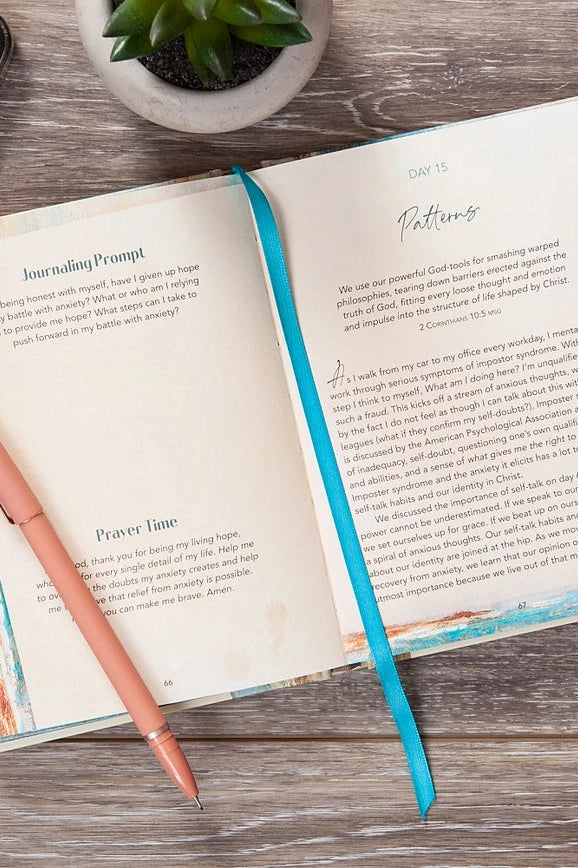 Journaling Prompt
being honest with myself, have I given up hope
battle with anxiety? What or who am I relying
to provide me hope? What steps can I take to
push forward in my battle with anxiety?
Prayer Time
God, thank you for being my living hope,
for every single detail of my life. Help me
the doubts my anxiety creates and help
me that relief from anxiety is possible.
you can make me brave. Amen.
66
DAY 15
Patterns
We use our powerful God-tools for smashing warped
philosophies, tearing down barriers erected against the
truth of God, fitting every loose thought and emotion
and impulse into the structure of life shaped by Christ.
2 CORINTHIANS 10:5 MSG
As I walk from my car to my office every workday, I
work through serious symptoms of impostor syndrome. With
step I think to myself, What am I doing here? I'm
such a fraud. This kicks off a stream of anxious thoughts,
by the fact I do not feel as though I can talk about this
leagues (what if they confirm my self-doubts?). Imposter
is discussed by the American Psychological Association
of inadequacy, self-doubt, questioning one's own
and abilities, and a sense of what gives me the right to
Imposter syndrome and the anxiety it elicits has a lot
self-talk habits and our identity in Christ.
We discussed the importance of self-talk on day
power cannot be underestimated. If we speak to
we set ourselves up for grace. If we beat up on
a spiral of anxious thoughts. Our self-talk habits
about our identity are joined at the hip. As we
recovery from anxiety, we learn that our opinion
utmost importance because we live out of that
67